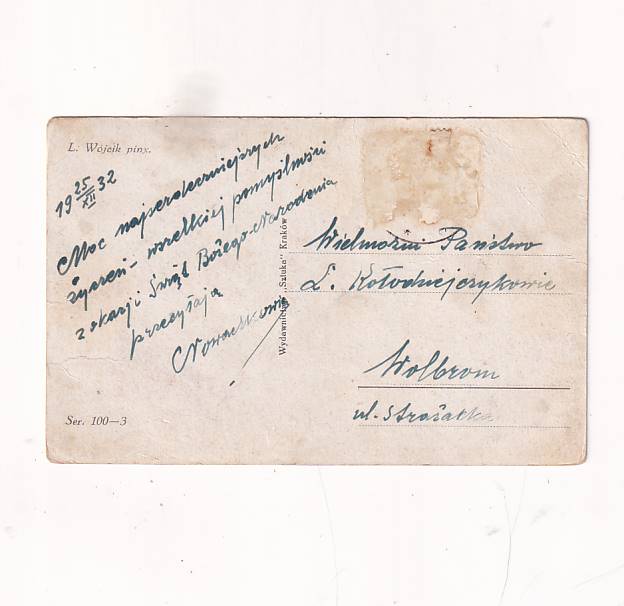 L. Wójcik pinx.
19 25/XII 32
Moc najserdeczniejszych
życzeń - wszelkiej pomyślności
z okazji Świąt Bożego-Narodzenia
przesyłają
Nowackowie
Wydawnictwo „Sztuka” Kraków
Wielmożni Państwo
Ł. Kołodziejczykowie
Wolbrom
ul. Strażacka
Ser. 100—3